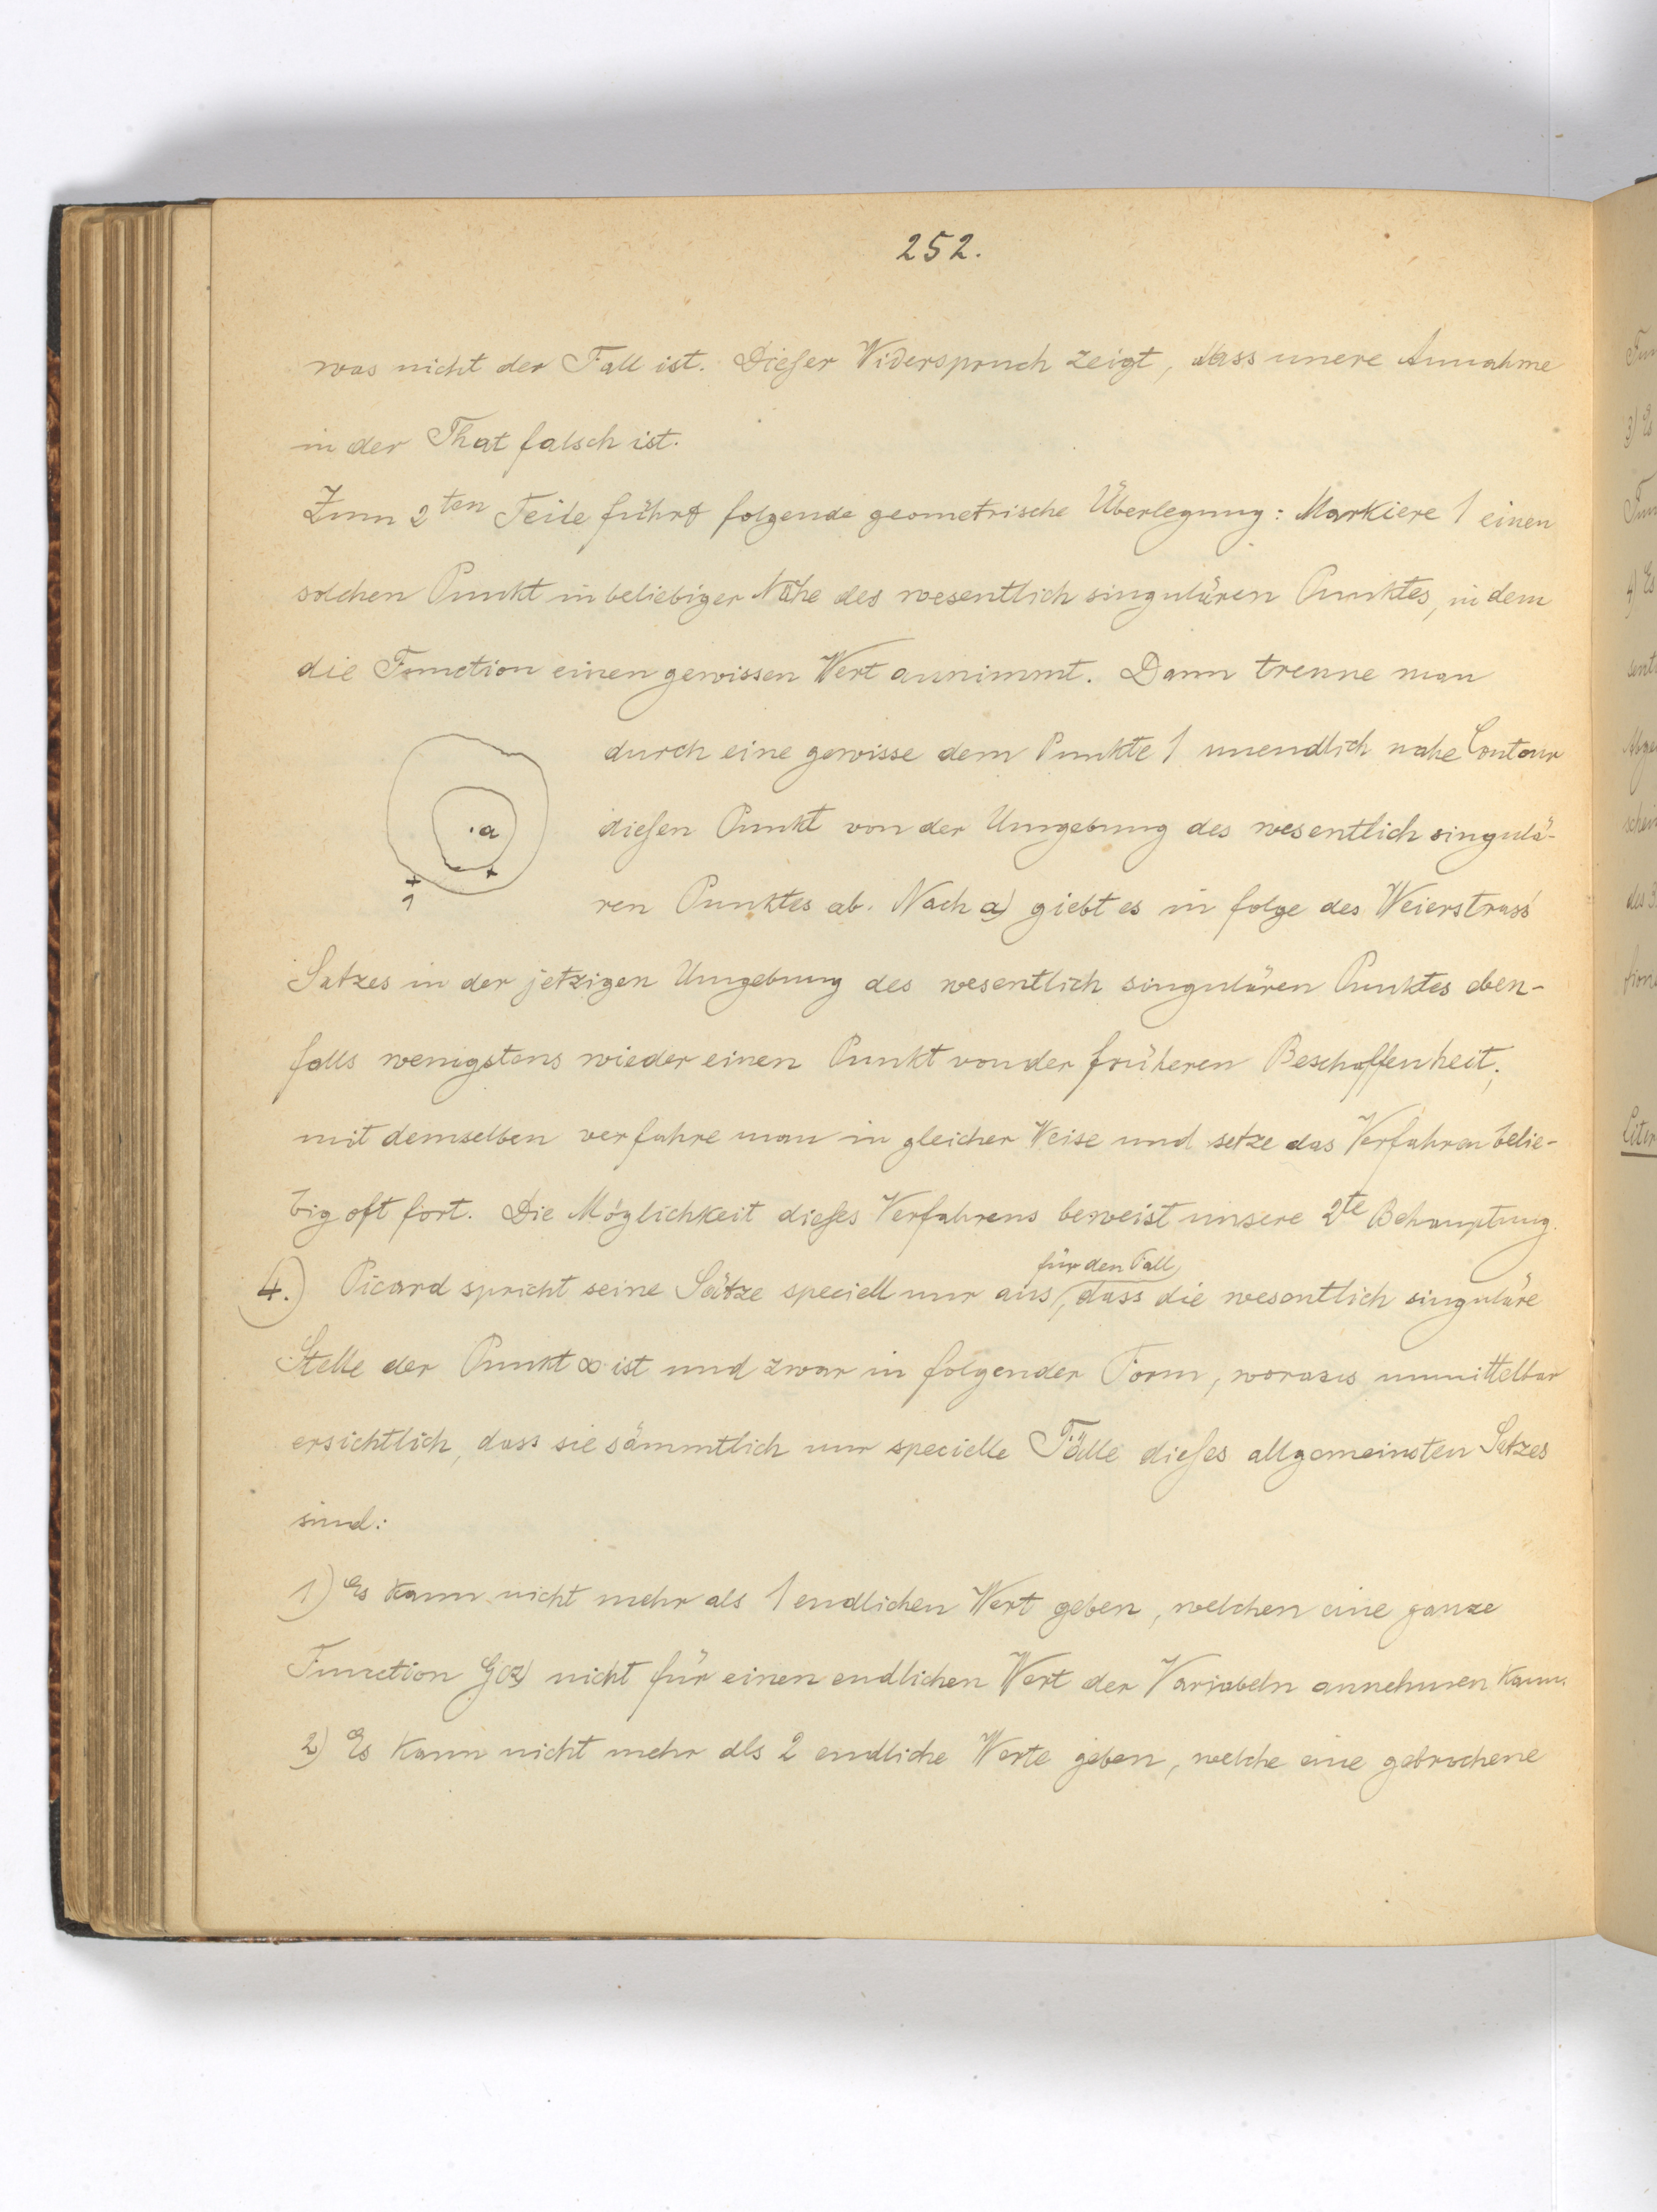 252.
was nicht der Fall ist. Dieser Widerspruch zeigt, dass unere Annahme
in der That falsch ist.
Zum 2ten Teile führt folgende geometrische Überlegung: Markiere 1 einen
solchen Punkt in beliebiger Nähe des wesentlich singulären Punktes, in dem
die Function einen gewissen Wert annimmt. Dann trenne man
durch eine gewisse dem Punkte 1 unendlich nahe Contour
diesen Punkt von der Umgebung des wesentlich singulä-
ren Punktes ab. Nach a) giebt es in folge des Weierstrass'
Satzes in der jetzigen Umgebung des wesentlich singulären Punktes eben-
falls wenigstens wieder einen Punkt von der früheren Beschaffenheit;
mit demselben verfahre man in gleicher Weise und setze das Verfahren belie-
big oft fort. Die Möglichkeit dieses Verfahrens beweist unsere 2te Behauptung.
4.) Picard spricht seine Sätze speciell nur aus, für den Fall, dass die wesentlich singuläre
Stelle der Punkt ∞ ist und zwar in folgender Form, woraus unmittelbar
ersichtlich, dass sie sämmtlich nur specielle Fälle dieses allgemeinsten Satzes
sind:
1) Es kann nicht mehr als 1 endlichen Wert geben, welchen eine ganze
Function G(z) nicht für einen endlichen Wert der Variabeln annehmen kann.
2) Es kann nicht mehr als 2 endliche Werte geben, welche eine gebrochene
a
1